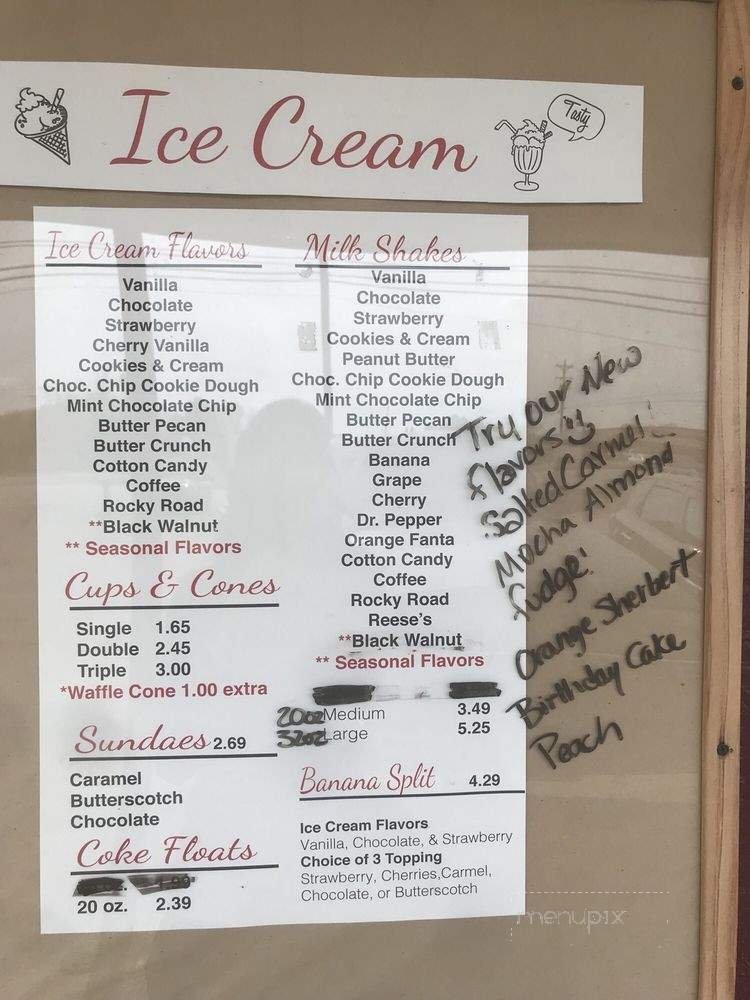 Ice Cream
Tasty
Ice Cream Flavors
Vanilla
Chocolate
Strawberry
Cherry Vanilla
Cookies & Cream
Choc. Chip Cookie Dough
Mint Chocolate Chip
Butter Pecan
Butter Crunch
Cotton Candy
Coffee
Rocky Road
**Black Walnut
** Seasonal Flavors
Cups & Cones
Single 1.65
Double 2.45
Triple 3.00
*Waffle Cone 1.00 extra
Sundaes 2.69
Caramel
Butterscotch
Chocolate
Coke Floats
20 oz. 2.39
Milk Shakes
Vanilla
Chocolate
Strawberry
Cookies & Cream
Peanut Butter
Choc. Chip Cookie Dough
Mint Chocolate Chip
Butter Pecan
Butter Crunch
Banana
Grape
Cherry
Dr. Pepper
Orange Fanta
Cotton Candy
Coffee
Rocky Road
Reese's
**Black Walnut
** Seasonal Flavors
20oz Medium 3.49
32oz Large 5.25
Banana Split 4.29
Ice Cream Flavors
Vanilla, Chocolate, & Strawberry
Choice of 3 Topping
Strawberry, Cherries,Carmel,
Chocolate, or Butterscotch
Try our New
flavors
Salted Carmel
Mocha Almond
fudge
Orange Sherbert
Birthday Cake
Peach
menupix